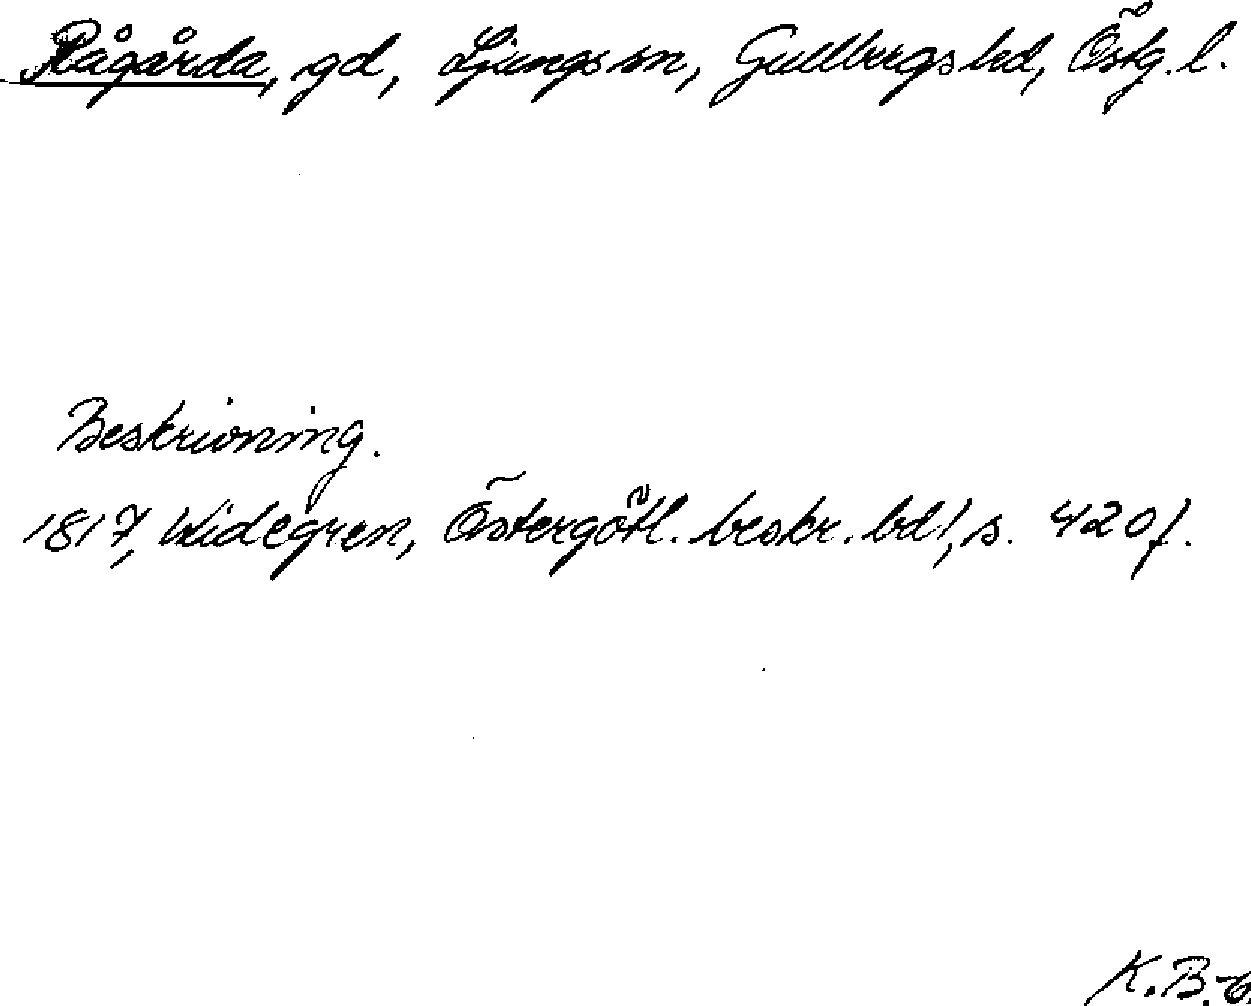 Rågårda, gd, Ljungs sn, Gullbergs hd, Östg. l.
Beskrivning.
1817, Widegren, Östergötl. beskr. bd 1, s. 420 f.
K.B-g.